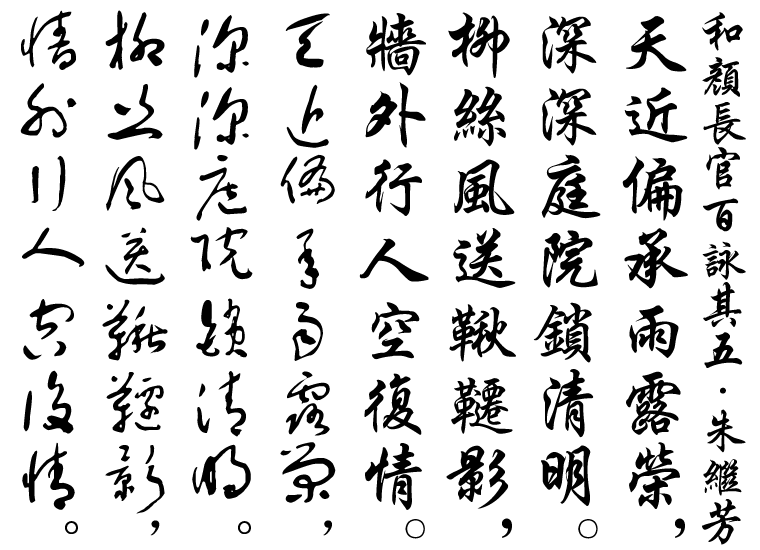 和顏長官百詠其五·朱繼芳
天近偏承雨露榮，
深深庭院鎖清明。
柳絲風送鞦韆影，
牆外行人空復情。
天近偏承雨露榮，
深深庭院鎖清明。
柳絲風送鞦韆影，
牆外行人空復情。